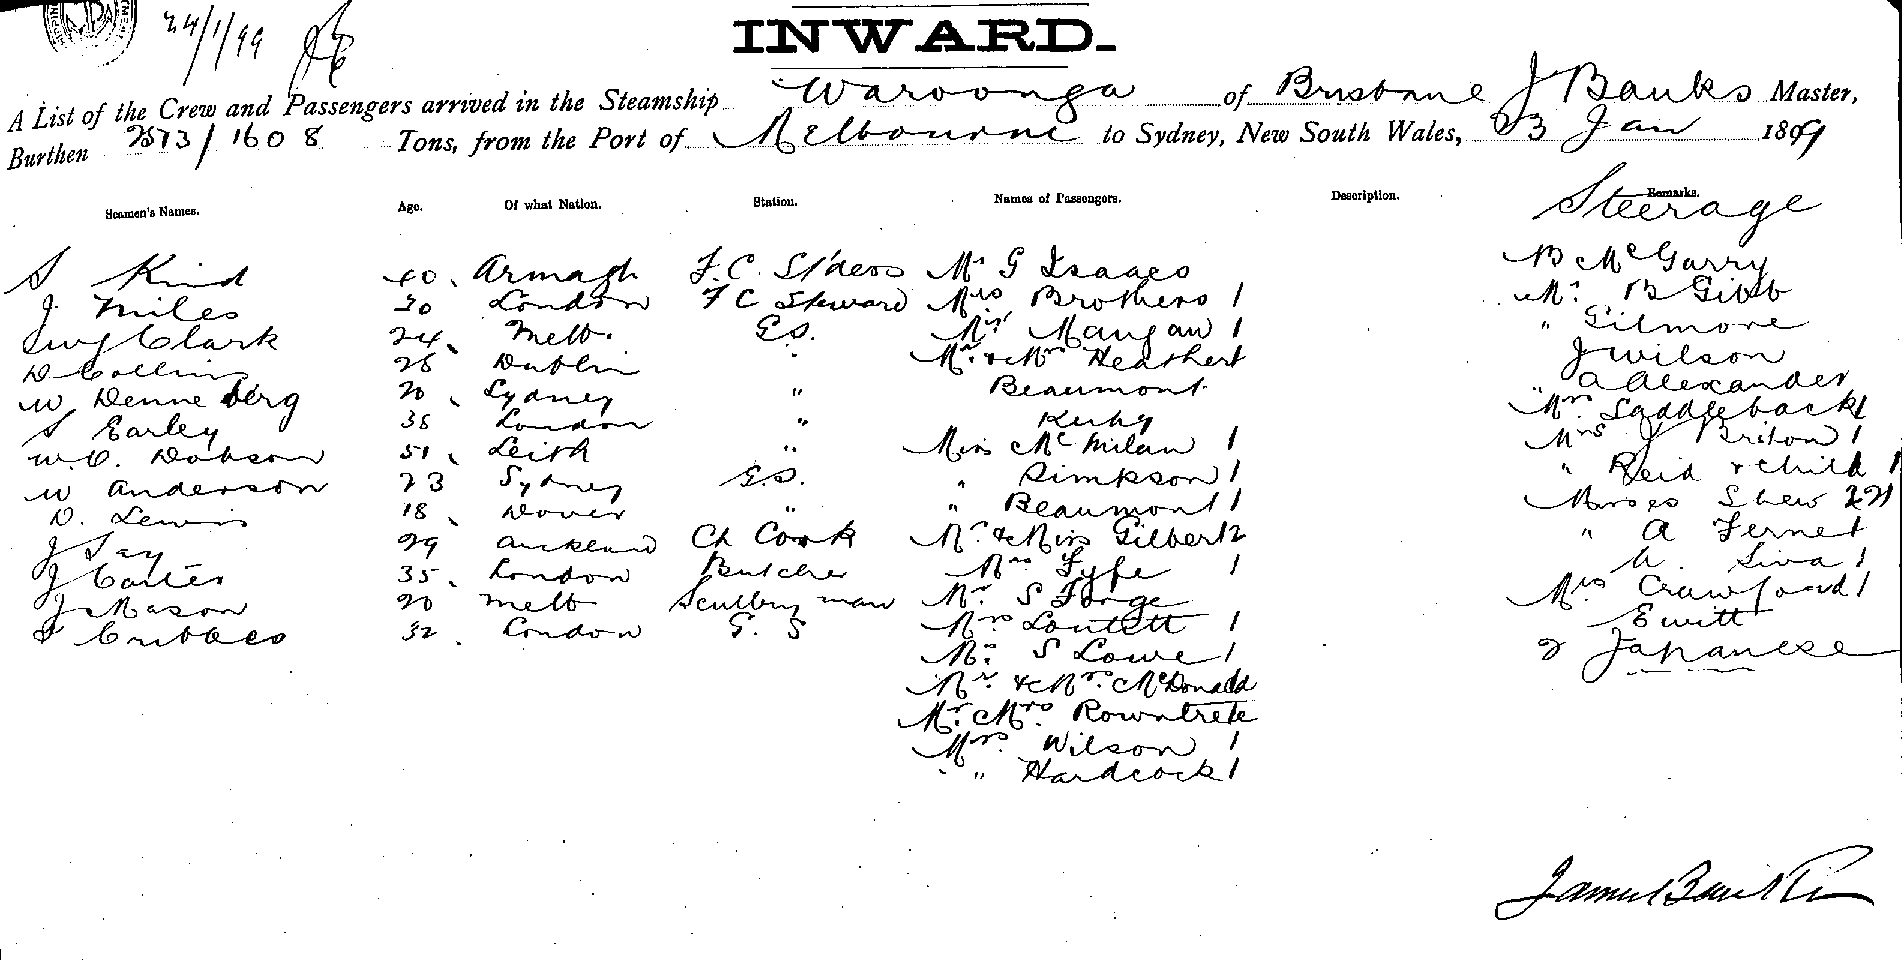 24/1/99
INWARD.
A List of the Crew and Passengers arrived in the Steamship Waroonga of Brisbane J Banks Master,
Burthen 2513/1608 Tons, from the Port of Melbourne to Sydney, New South Wales, 23 Jan 1899
Seamen's Names. Age. Of what Nation. Station. Names of Passengers. Description. Remarks.
Steerage
S Kind 40. Armagh F.C. St'dess Mr G Isaacs B McGarry
J Miles 30 London F C Steward Mrs Brothers 1 Mr. B Gibb
Clark 24. Melb. G.S. Miss Mangan 1 " Gilmore
D Collins 28 Dublin " Mr. & Mrs Heathert J Wilson
W Denneberg 20. Sydney " Beaumont " A Alexander
S Earley 38 London " Kirby Mrs. Saddleback 1
W.C. Dobson 51. Leith " Miss McMilan 1 Mrs J Briton 1
W Anderson 23 Sydney G.S. " Simpson 1 " Reid & child 1
D. Lewis 18. Dover " " Beaumont 1 Messes Shew
J Say 29 Auckland Ch Cook Mr. & Miss Gilbert 2 " A Fernet
J Carter 35. London Butcher Mrs Fyfe 1 Siva 1
J Mason 20 Melb Scullery man Mr. S Forge Mrs Crawford 1
Cribbes 32. London G.S Mrs Loutett 1 Ewitt
Mr. S Lowe 1 2 Japanese
Mr. & Mrs. McDonald
Mr. & Mrs Rowntree
Mrs. Wilson 1
" Hardcock 1